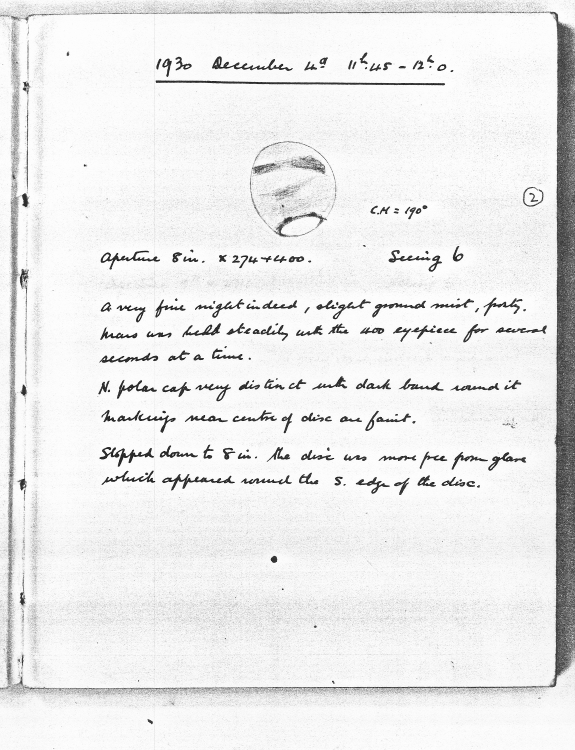 1930 December 4d 11h.45 - 12h.0.
C.M = 190°
2
Aperture 8 in. x 274 + 400. Seeing 6
A very fine night indeed, slight ground mist,
Mars was held steadily with the 400 eyepiece for several
seconds at a time.
N. polar cap very distinct with dark band round it
Markings near centre of disc are faint.
Stopped down to 8 in. the disc was more free from glare
which appeared round the S. edge of the disc.